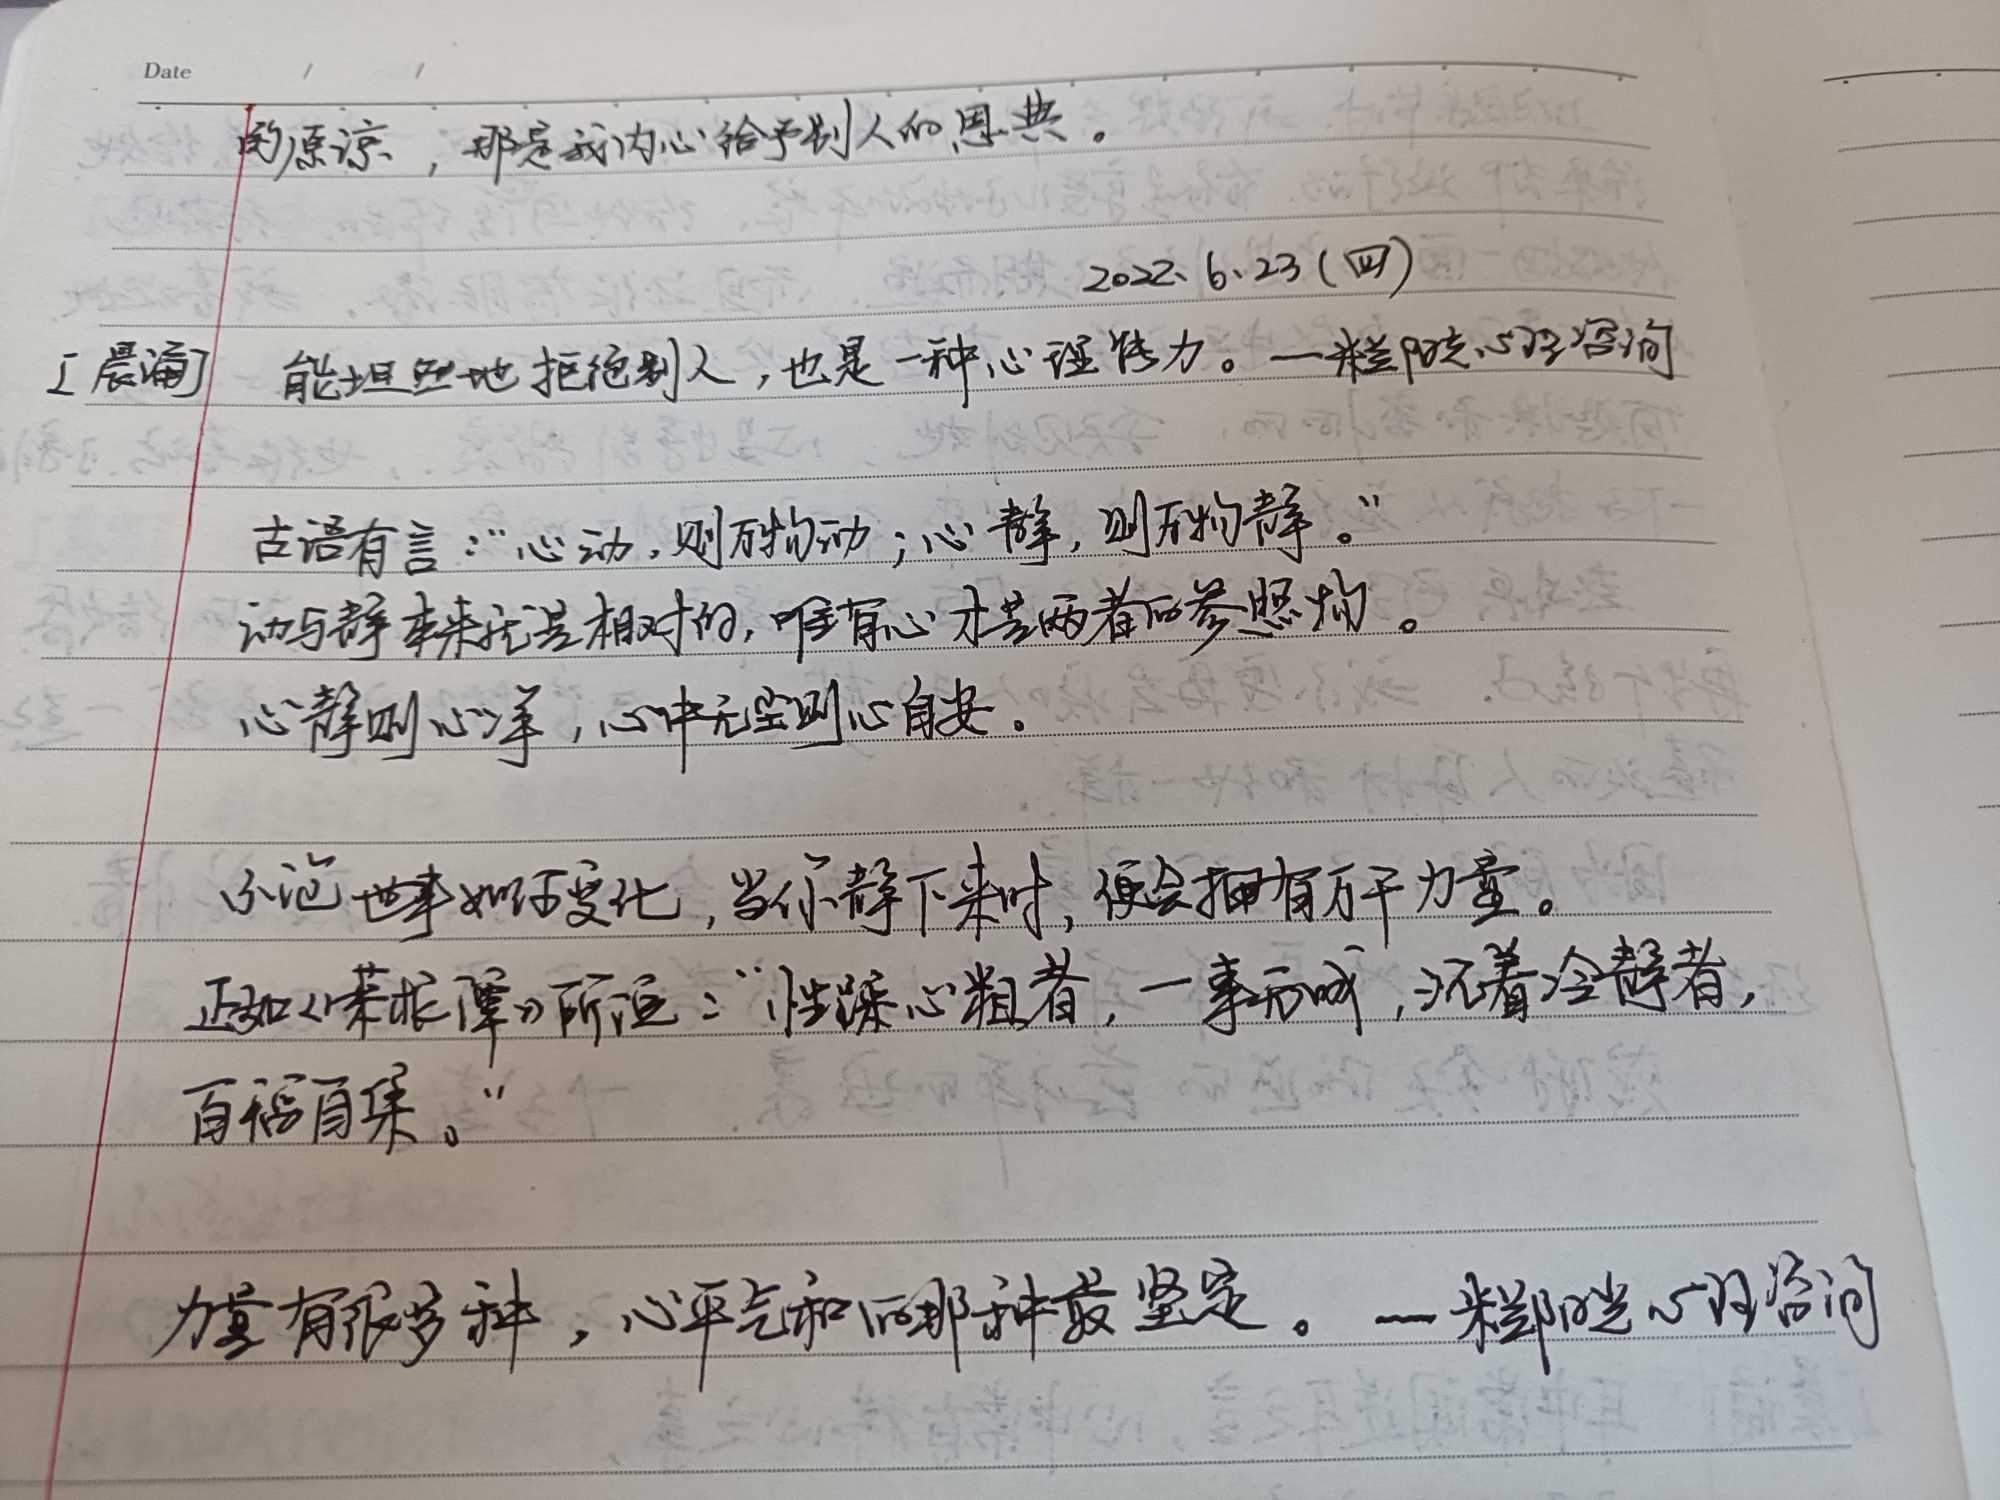 Date / /
的原谅，那是我内心给予别人的恩典。
2022.6.23(四)
[晨诵] 能坦然地拒绝别人，也是一种心理能力。—晓心理咨询
古语有言：“心动，则万物动；心静，则万物静。”
动与静本来就是相对的，唯有心才是两者的参照物。
心静则心净，心中无尘则心自安。
不论世事如何变化，当你静下来时，便会拥有万千力量。
正如《菜根谭》所说：“性躁心粗者，一事无成，沉着冷静者，
百福自集。”
力量有很多种，心平气和的那种最坚定。—晓心理咨询